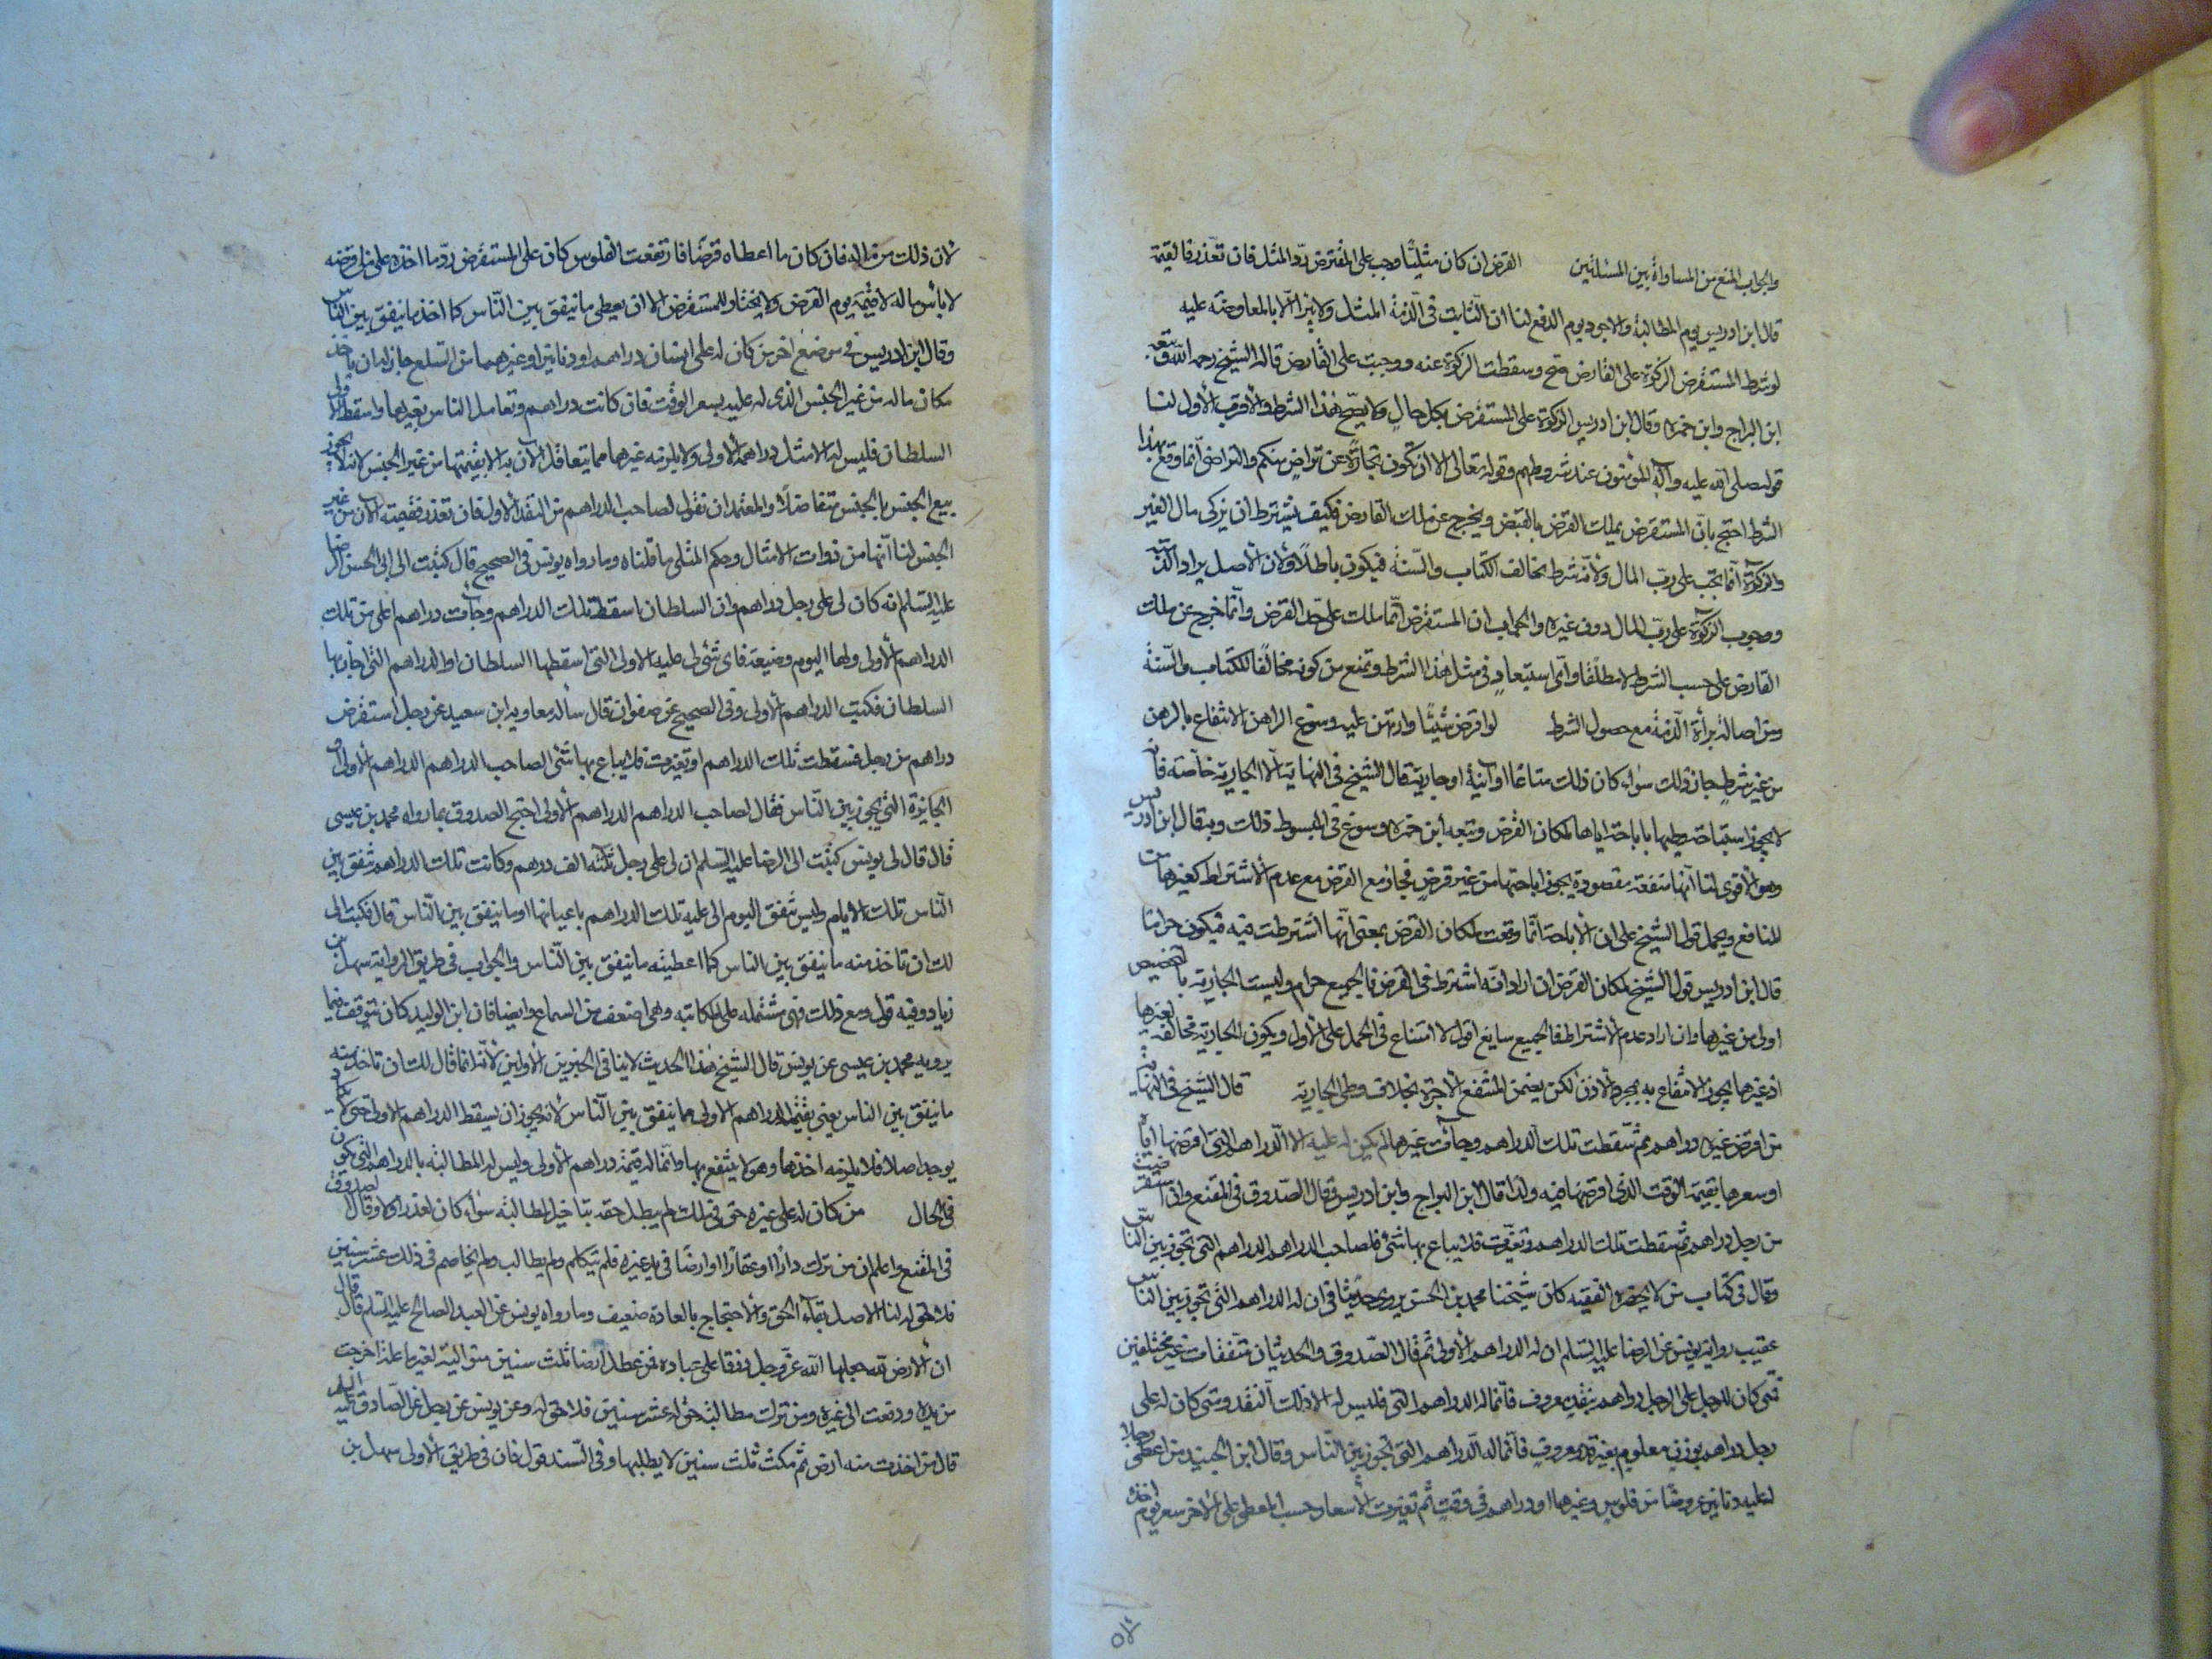 والجواب المنع من المساواة بين المسئلتين القرض ان كان مثليًّا وجب على المقترض ردّ المثل فان تعّذر فالقيمة
قال ابن ادريس يوم المطالبة والاجود يوم الدفع لنا ان الثّابت فى الذّمة المثل ولا يبرأ الّا بالمعاوضة عليه
لو شرط المستقرض الزكوة على القارض صح وسقطت الزكوة عنه ووجبت على القارض قاله الشيخ رحمه الله وتبعه
ابن البراج وابن حمزه وقال ابن ادريس الزكوة على المستقرض بكل حالٍ ولا يصّح هذا الشرط والأقرب الأول لنا
قوله صلى الله عليه وآله المؤمنون عند شروطهم وقوله تعالى الا ان تكون تجارًة عن تراضٍ منكم والتراضى انّما وقع بهذا
الشرط احتج بانّ المستقرض يملك القرض بالقبض ويخرج عن ملك القارض فكيف يشترط ان يزكى مال الغير
والزكوة انّما تجب على ربّ المال ولأنّه شرط يخالف الكتاب والسّنة فيكون باطلًا ولان الأصل براة الذّمة
ووجوب الزكوة على ربّ المال دون غيره والجواب ان المستقرض انّما ملك على حدّ القرض وانّما خرج عن ملك
القارض على حسب الشرط لا مطلقًا واىّ استبعادٍ فى مثل هذا الشرط ونمنع من كونه مخالفًا للكتاب والسّنة
ومن اصالة برأة الذّمة مع حصول الشرط لو اقرض شيئًا وارتهن عليه وسوّغ الراهن الانتفاع بالرهن
من غير شرطٍ جاز ذلك سواء كان ذلك متاعًا او انية او جارية قال الشيخ فى النهاية الا الجارية خاصّة فانه
لا يجوز استباحة وطيها باباحته اياها لمكان القرض وتبعه ابن حمزه وسوغ فى المبسوط ذلك وبه قال ابن ادريس
وهو الأقوى لنا انّها منفعة مقصودة يجوز اباحتها من غير قرضٍ فجاز مع القرض مع عدم الاشتراط كغيرها من
المنافع ويحمل قول الشيخ على ان الاباحة انّما وقعت لمكان القرض بمعنى انّها اشترطت فيه فيكون حرامًا
قال ابن ادريس قول الشيخ لمكان القرض ان اراد انّه اشترط فى القرض فالجميع حرام وليست الجارية بالتخصيص
اولى من غيرها وان اراد عدم الاشتراط فالجميع سايغ اقول لا امتناع فى الحمل على الأول ويكون الجارية مخالفة لغيرها
اذ غيرها يجوز الانتفاع به بمجرد الأذن لكن يضمن المنتفع الأجرة بخلاف وطى الجارية قال الشيخ فى النهاية
من اقرض غيره دراهم ثم سّقطت تلك الدراهم وجاءت غيرها لم يكن له عليه الا الدّراهم التى اقرضها اياه
او سعرها بقيمة الوقت الذى اقرضها فيه ولذا قال ابن البراج وابن ادريس وقال الصّدوق فى المقنع وان استقرضت
من رجل دراهم ثم سقطت تلك الدراهم وتغيّرت فلا يباع بها شئ فلصاحب الدراهم الدراهم التى تجوز بين النّاس
وقال فى كتاب من لا يحضره الفقيه كان شيخنا محمد بن الحسن يروى حديثًا فى ان له الدراهم التى تجوز بين النّاس
عقيب رواية يونس عن الرضا عليه السّلم ان له الدراهم الأولى ثم قال الصّدوق والحديثان متّفقان غير مختلفين
متى كان للرجل على الرجل دراهم بنقدٍ معروف فانّما له الدراهم التى فليس له الا ذلك النّقد ومتى كان له على
رجل دراهم بوزنٍ معلومٍ بغير نقد معروفٍ فانّما له الدّراهم التى تجوز بين النّاس وقال ابن الجنيد من اعطى رجلا
له عليه دنانير عروضًا من فلوسٍ وغيرها او دراهم فى وقت ثم تغيرت الأسعار حسب المعطى على الاخر سعر يوم اخذه
٥٨
لان ذلك من ماله فان كان ما اعطاه قرضًا فارتفعت الفلوس كان على المستقرض ردّ ما اخذه على من اقرضه
لا بأس ماله لا قيمة يوم القرض ولا يختار للمستقرض الا ان يعطى ما ينفق بين النّاس كما اخذ ما ينفق بين النّاس
وقال ابن ادريس فى موضع اخر من كان له على انسان دراهم او دنانير او غيرهما من السّلع جاز له ان ياخذ
مكان ماله من غير الجنس الذى له عليه بسعر الوقت فان كانت دراهم وتعامل الناس بغيرها واسقط الاولى
السلطان فليس له الا مثل دراهمه الأولى ولا يلزمه غيرها مما يتعامل الآن به الا بقيمتها من غير الجنس لانه لا يجوز
بيع الجنس بالجنس متفاضلًا والمعتمد ان نقول لصاحب الدراهم من النقد الاول فان تعذر فقيمته الآن من غير
الجنس لنا انّها من ذوات الامثال وحكم المثلى ما قلناه وما رواه يونس فى الصحيح قال كتبت الى ابى الحسن الرضا
عليه السّلم انه كان لى على رجل دراهم وان السلطان اسقط تلك الدراهم وجاءت دراهم اعلى من تلك
الدراهم الأولى ولها اليوم وضيعة فاى شئ لى عليه الاولى التى اسقطها السلطان او الدراهم التى اجازها
السلطان فكتب الدراهم الأولى وفى الصحيح عن صفوان قال سأله معاوية ابن سعيد عن رجل استقرض
دراهم من رجل فسقطت تلك الدراهم او تغيرت فلا يباع بها شئ الصاحب الدراهم الدراهم الأولى او
الجايزة التى يجوز بين النّاس فقال لصاحب الدراهم الدراهم الأولى احتج الصدوق بما رواه محمد بن عيسى
قال قال لى يونس كتبت الى الرضا عليه السّلم ان لى على رجل ثلثه الف درهم وكانت تلك الدراهم تنفق بين
النّاس تلك الايام وليس تنفق اليوم الى عليه تلك الدراهم باعيانها او ما ينفق بين النّاس قال فكتب الى
لك ان تاخذ منه ما ينفق بين الناس كما اعطيته ما ينفق بين النّاس والجواب فى طريق الرواية سهل بن
زياد وفيه قول ومع ذلك فهى مشتمله على المكاتبة وهى اضعف من السماع وايضا فان ابن الوليد كان يتوقف فيما
يرويه محمد بن عيسى عن يونس قال الشيخ هذا الحديث لا ينافى الخبرين الأولين لأنّه انّما قال لك ان تاخذ منه
ما ينفق بين الناس يعنى بقيمة الدراهم الاولى مما ينفق بين النّاس لانه يجوز ان يسقط الدراهم الاولى حتى لا يكاد
يوجد اصلا فلا يلزمه اخذها وهو لا ينتفع بها وانّما له قيمة دراهم الأولى وليس له المطالبة بالدراهم التى تكون
فى الحال من كان له على غيره حق فى ذلك لم يبطل حقه بتأخير المطالبة سواء كان لعذر او لا وقال الصدوق
فى المقنع واعلم ان من ترك دارًا او عقارًا او ارضًا فى يد غيره فلم يتكلم ولم يطالب ولم يخاصم فى ذلك عشر سنين
فلا حق له لنا الاصل بقآء الحق والاحتجاج بالعادة ضعيف وما رواه يونس عن العبد الصالح عليه السّلم قال قال
ان الأرض لله جعلها الله عزّ وجل وقفا على عباده فمن عطل ارضا ثلث سنين متوالية لغير ما علة اخرجت
من يده ودفعت الى غيره ومن ترك مطالبة حق له عشر سنين فلا حق له وعن يونس عن رجل عن الصّادق عليه السلم
قال من اخذت منه ارض ثم مكث ثلث سنين لا يطلبها وفى السّند قول فان فى طريق الأولى سهل بن